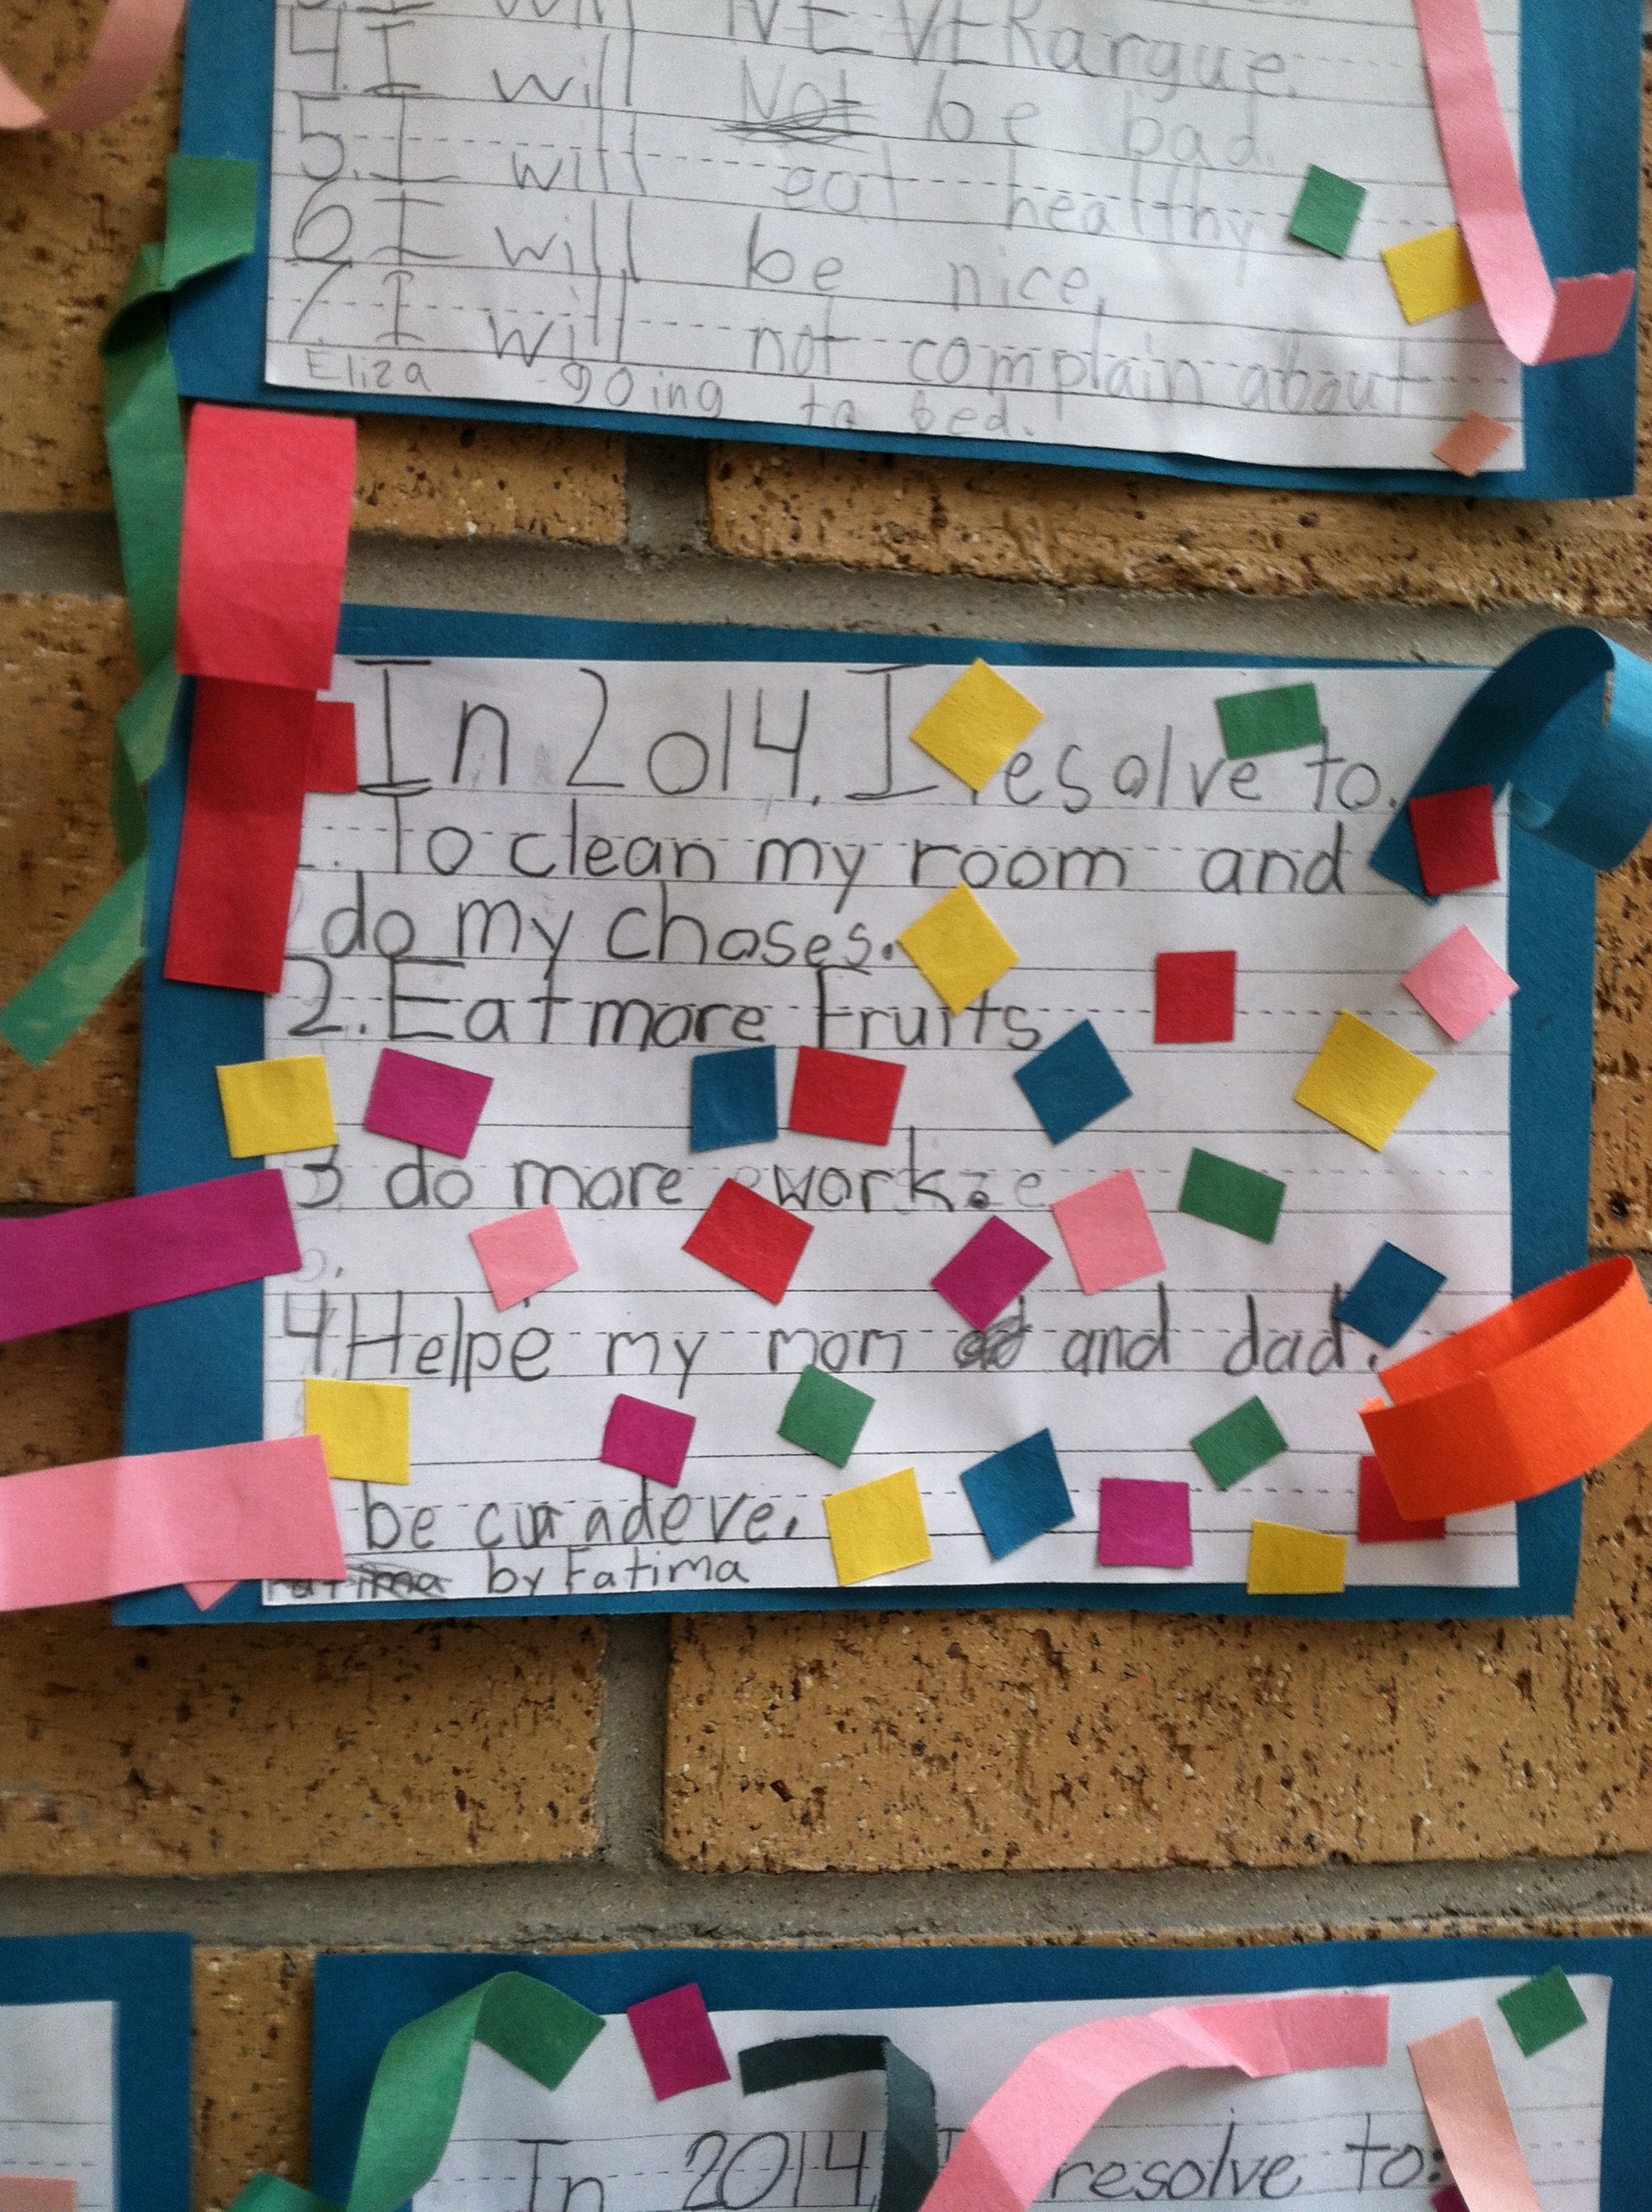 NEVER argue.
4. I will Not be bad.
5. I will eat healthy
6 I will be nice,
7. I will not complain about
Eliza going to bed.
In 2014, I resolve to.
. To clean my room and
do my choses.
2. Eat more Fruits
3 do more work.
4 Helpe my mom and dad.
be
Fatima by Fatima
In 2014, I resolve to: